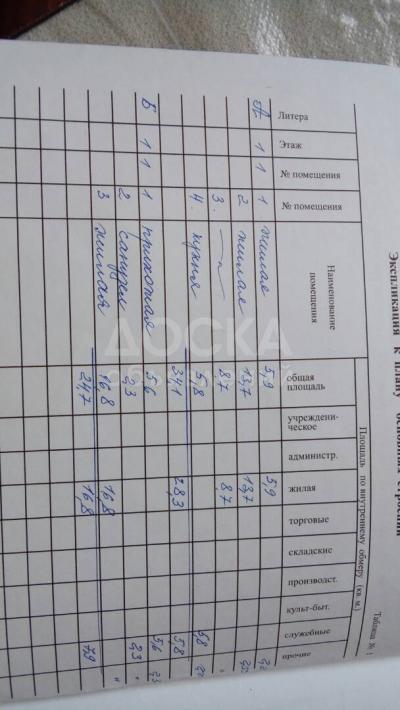 Таблица №
Экспликация к плану основных строений
Литера | Этаж | № помещения | № помещения | Наименование помещения | Площадь по внутреннему обмеру (кв м)
общая площадь | учреждени-ческое | администр. | жилая | торговые | складские | производст. | культ-быт. | служебные | прочие
А 1 1 1. жилая 5,9 5,9
2 жилая 13,7 13,7
3. —"— 8,7 8,7 "
4. кухня 5,8 5,8
34,1 28,3 5,8
Б 1 1 1 прихожая 5,6 5,6
2 санузел 2,3 2,3 "
3 жилая 16,8 16,8 "
24,7 16,8 7,9
ДОСКА